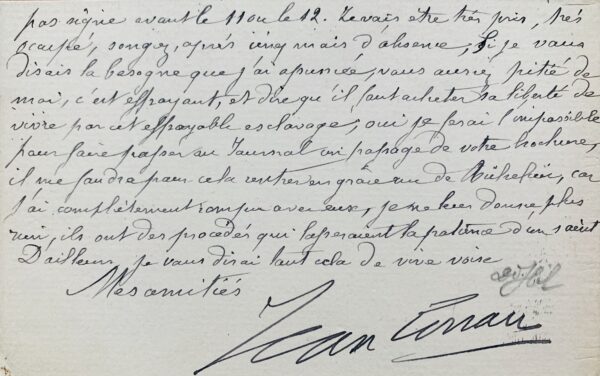 pas signe avant le 11 ou le 12. Je vais être très pris, très
occupé, songez, après cinq mois d'absence, Si je vous
disais la besogne que j'ai assumée, vous auriez pitié de
moi, c'est effrayant, et dire qu'il faut acheter sa liberté de
vivre par cet effroyable esclavage; oui je ferai l'impossible
pour faire passer au Journal un passage de votre brochure,
il me faudra pour cela rentrer en grâce rue de Richelieu, car
j'ai complètement rompu avec eux, je ne leur donne plus
rien, ils ont des procédés qui lasseraient la patience d'un saint
D'ailleurs je vous dirai tout cela de vive voix
Mes amitiés
Jean Lorrain